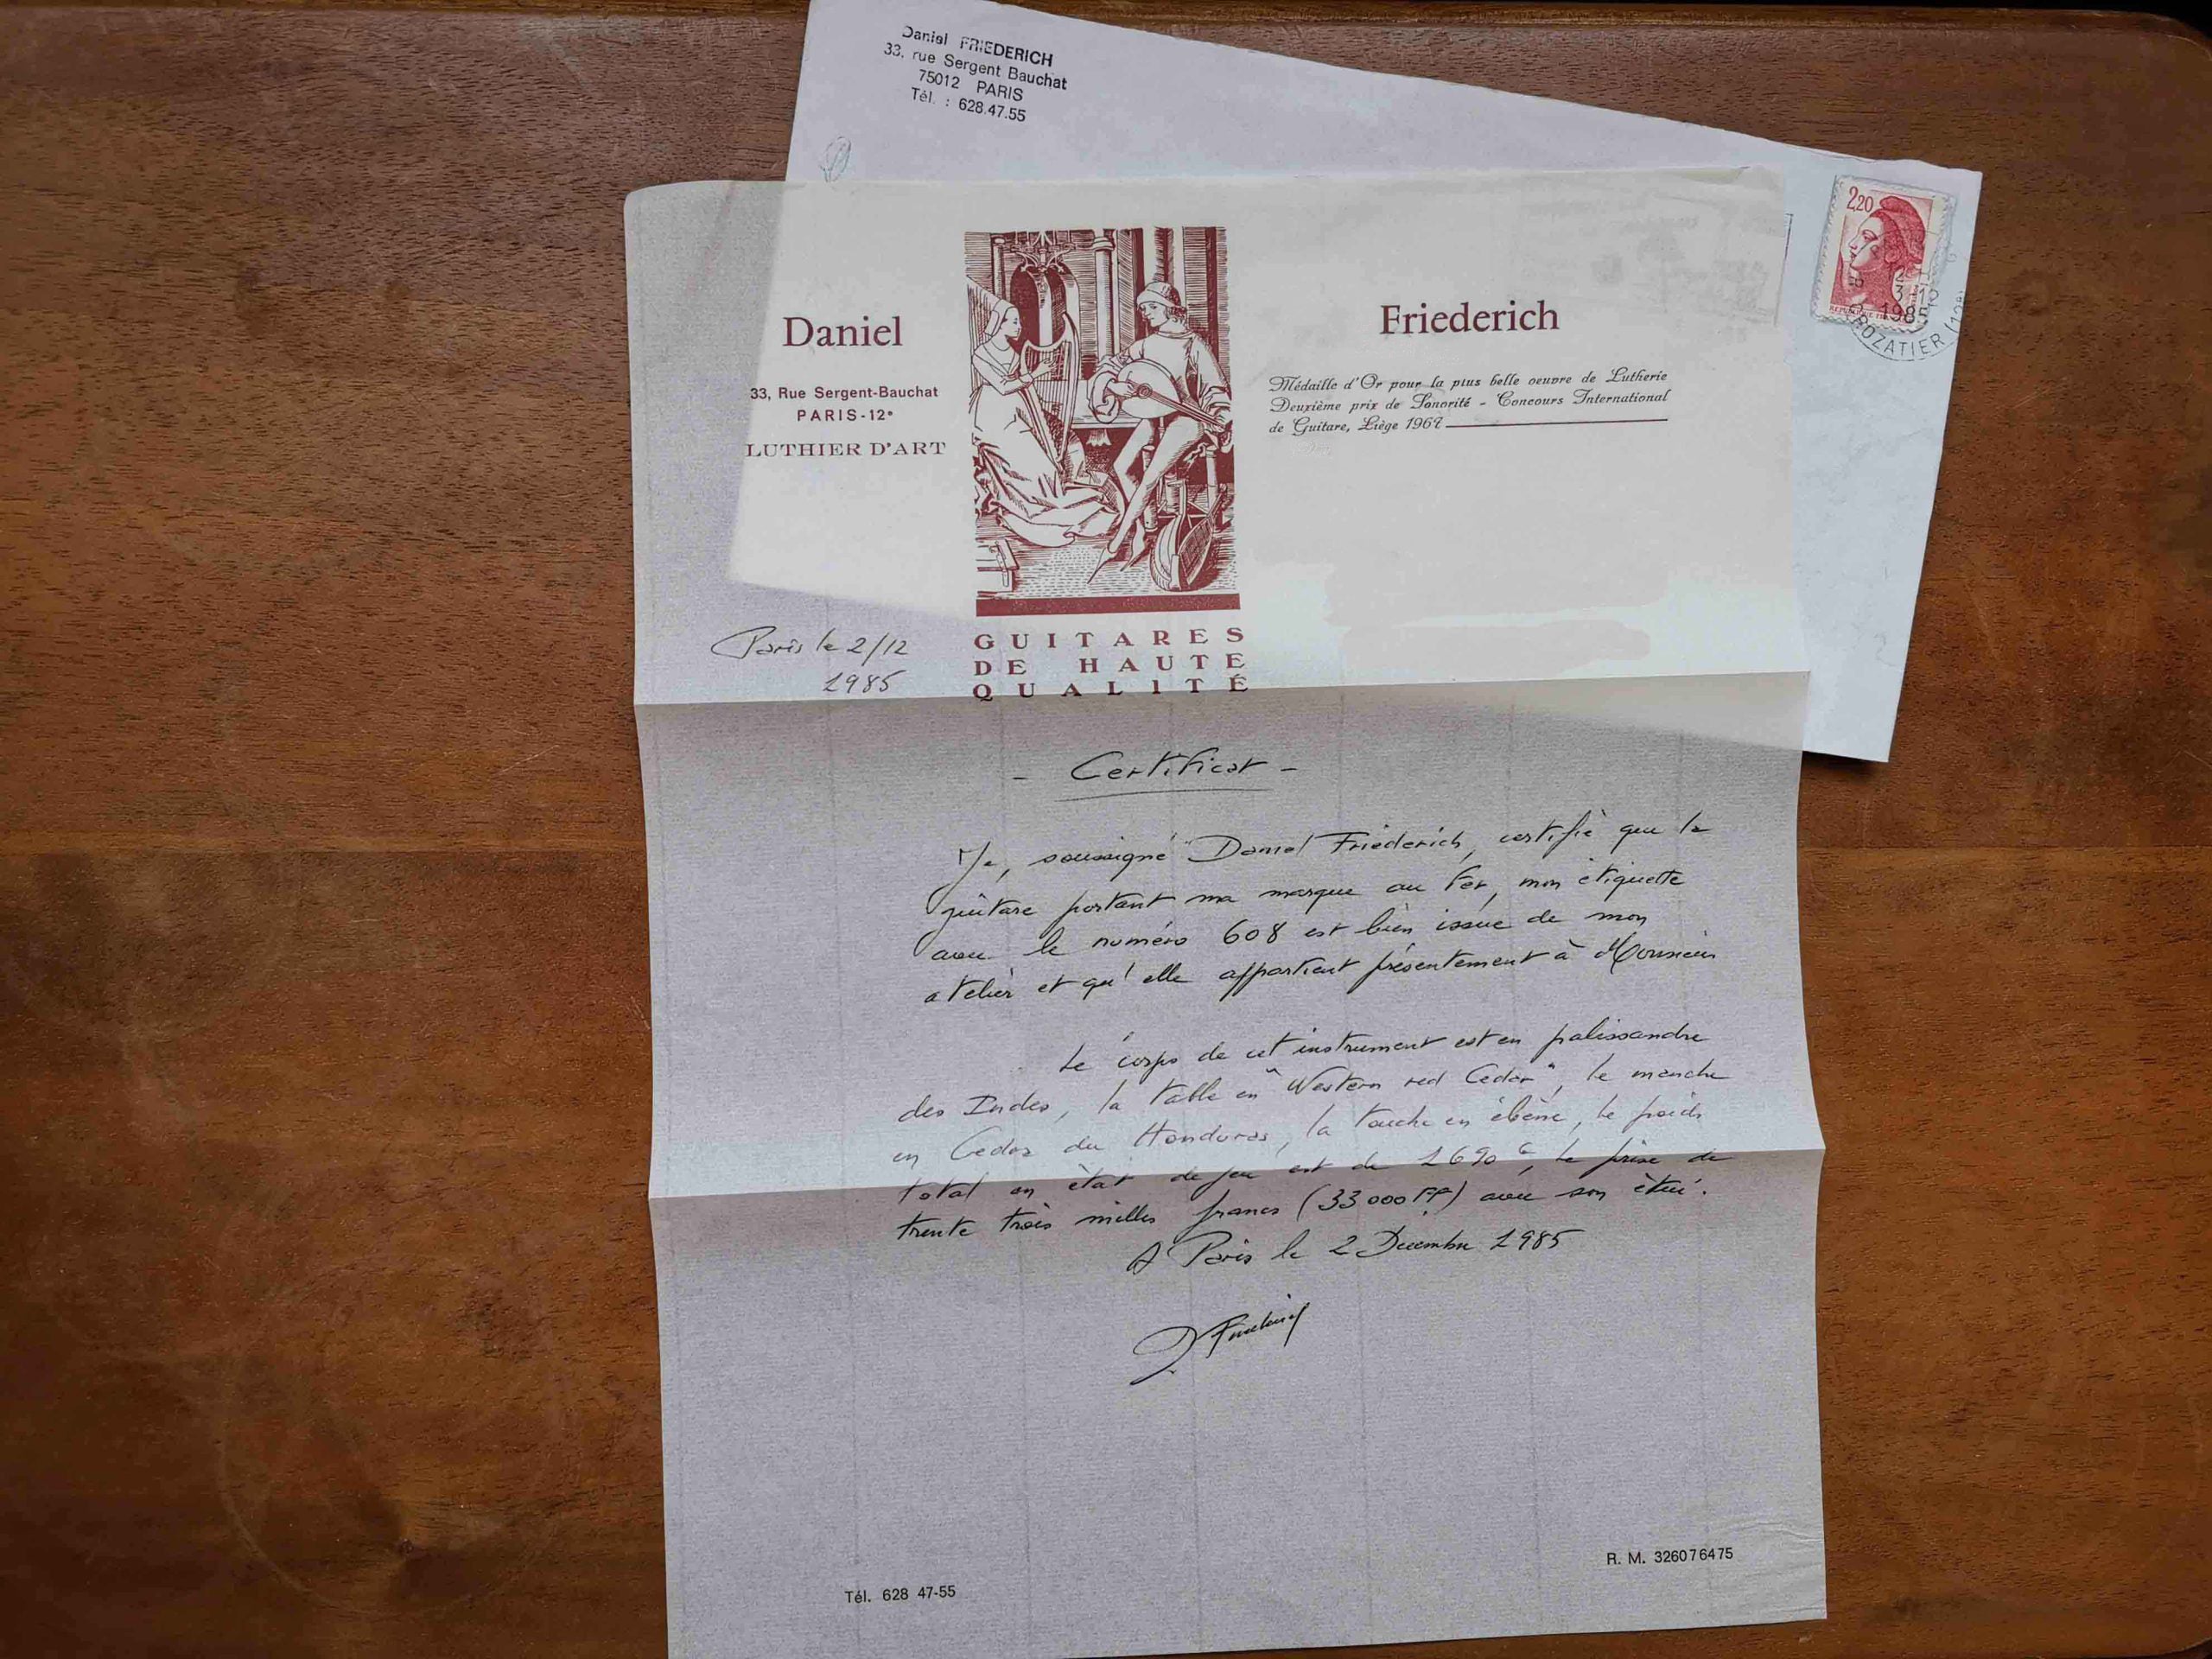 Daniel FRIEDERICH
33, rue Sergent Bauchat
75012 PARIS
Tél. : 628.47.55
2,20
1985
ROZATIER
Daniel
Friederich
33, Rue Sergent-Bauchat
PARIS-12e
LUTHIER D'ART
Médaille d'Or pour la plus belle oeuvre de Lutherie
Deuxième prix de Sonorité - Concours International
de Guitare, Liège 1967
Paris le 2/12
1985
GUITARES
DE HAUTE
QUALITÉ
- Certificat -
Je, soussigné Daniel Friederich, certifie que la
guitare portant ma marque au fer, mon étiquette
avec le numéro 608 est bien issue de mon
atelier et qu'elle appartient présentement à Monsieur
Le corps de cet instrument est en palissandre
des Indes, la table en "Western red Cedar", le manche
en Cedar du Honduras, la touche en ébène, le poids
total en état de jeu est de 1690 G, le prix de
trente trois milles francs (33 000 FF) avec son étui.
A Paris le 2 Decembre 1985
D Friederich
R. M. 326076475
Tél. 628 47-55